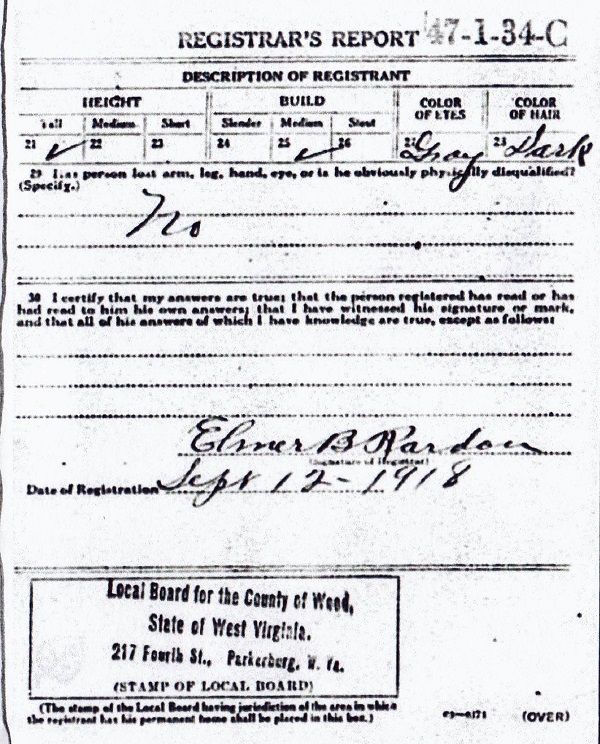 REGISTRAR'S REPORT 47-1-34-C
DESCRIPTION OF REGISTRANT
HEIGHT BUILD COLOR OF EYES COLOR OF HAIR
Tall Medium Short Slender Medium Stout
21 ✓ 22 23 24 25 ✓ 26 27 Gray 28 Dark
29 Has person lost arm, leg, hand, eye, or is he obviously physically disqualified?
(Specify.)
No
30 I certify that my answers are true; that the person registered has read or has
had read to him his own answers; that I have witnessed his signature or mark,
and that all of his answers of which I have knowledge are true, except as follows:
Elmer B Rardon
(Signature of Registrar)
Date of Registration Sept 12 - 1918
Local Board for the County of Wood,
State of West Virginia.
217 Fourth St., Parkersburg, W. Va.
(STAMP OF LOCAL BOARD)
(The stamp of the Local Board having jurisdiction of the area in which
the registrant has his permanent home shall be placed in this box.)
(OVER)